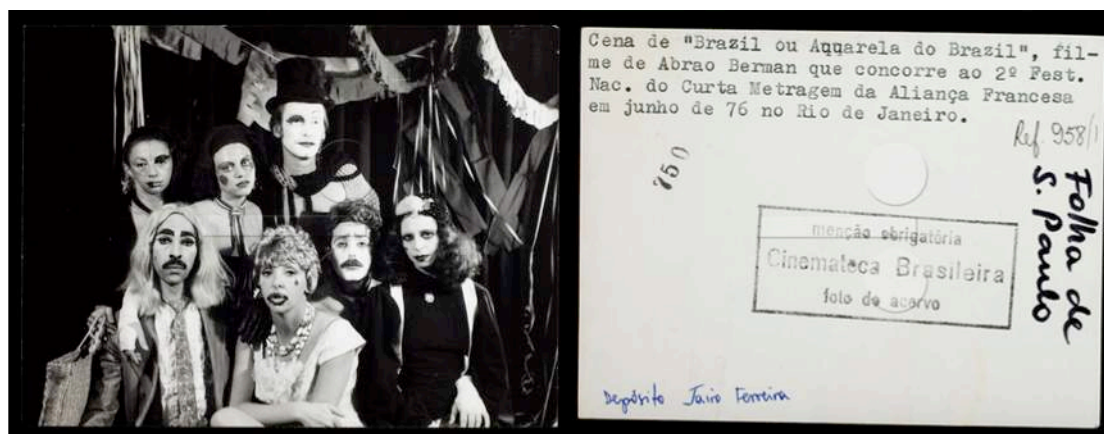 Cena de "Brazil ou Aqqarela do Brazil", fil-
me de Abrao Berman que concorre ao 2º Fest.
Nac. do Curta Metragem da Aliança Francesa
em junho de 76 no Rio de Janeiro.
Ref. 958/1
750
Folha de
S. Paulo
menção obrigatória
Cinemateca Brasileira
foto de acervo
Depósito Jairo Ferreira